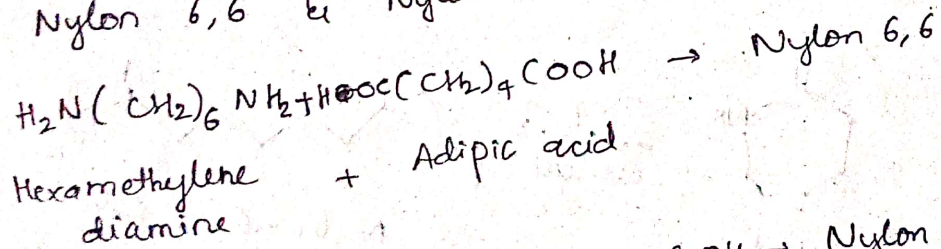 Nylon 6,6 &
H₂N(CH₂)₆NH₂+HOOC(CH₂)₄COOH → Nylon 6,6
Hexamethylene + Adipic acid
diamine
Nylon